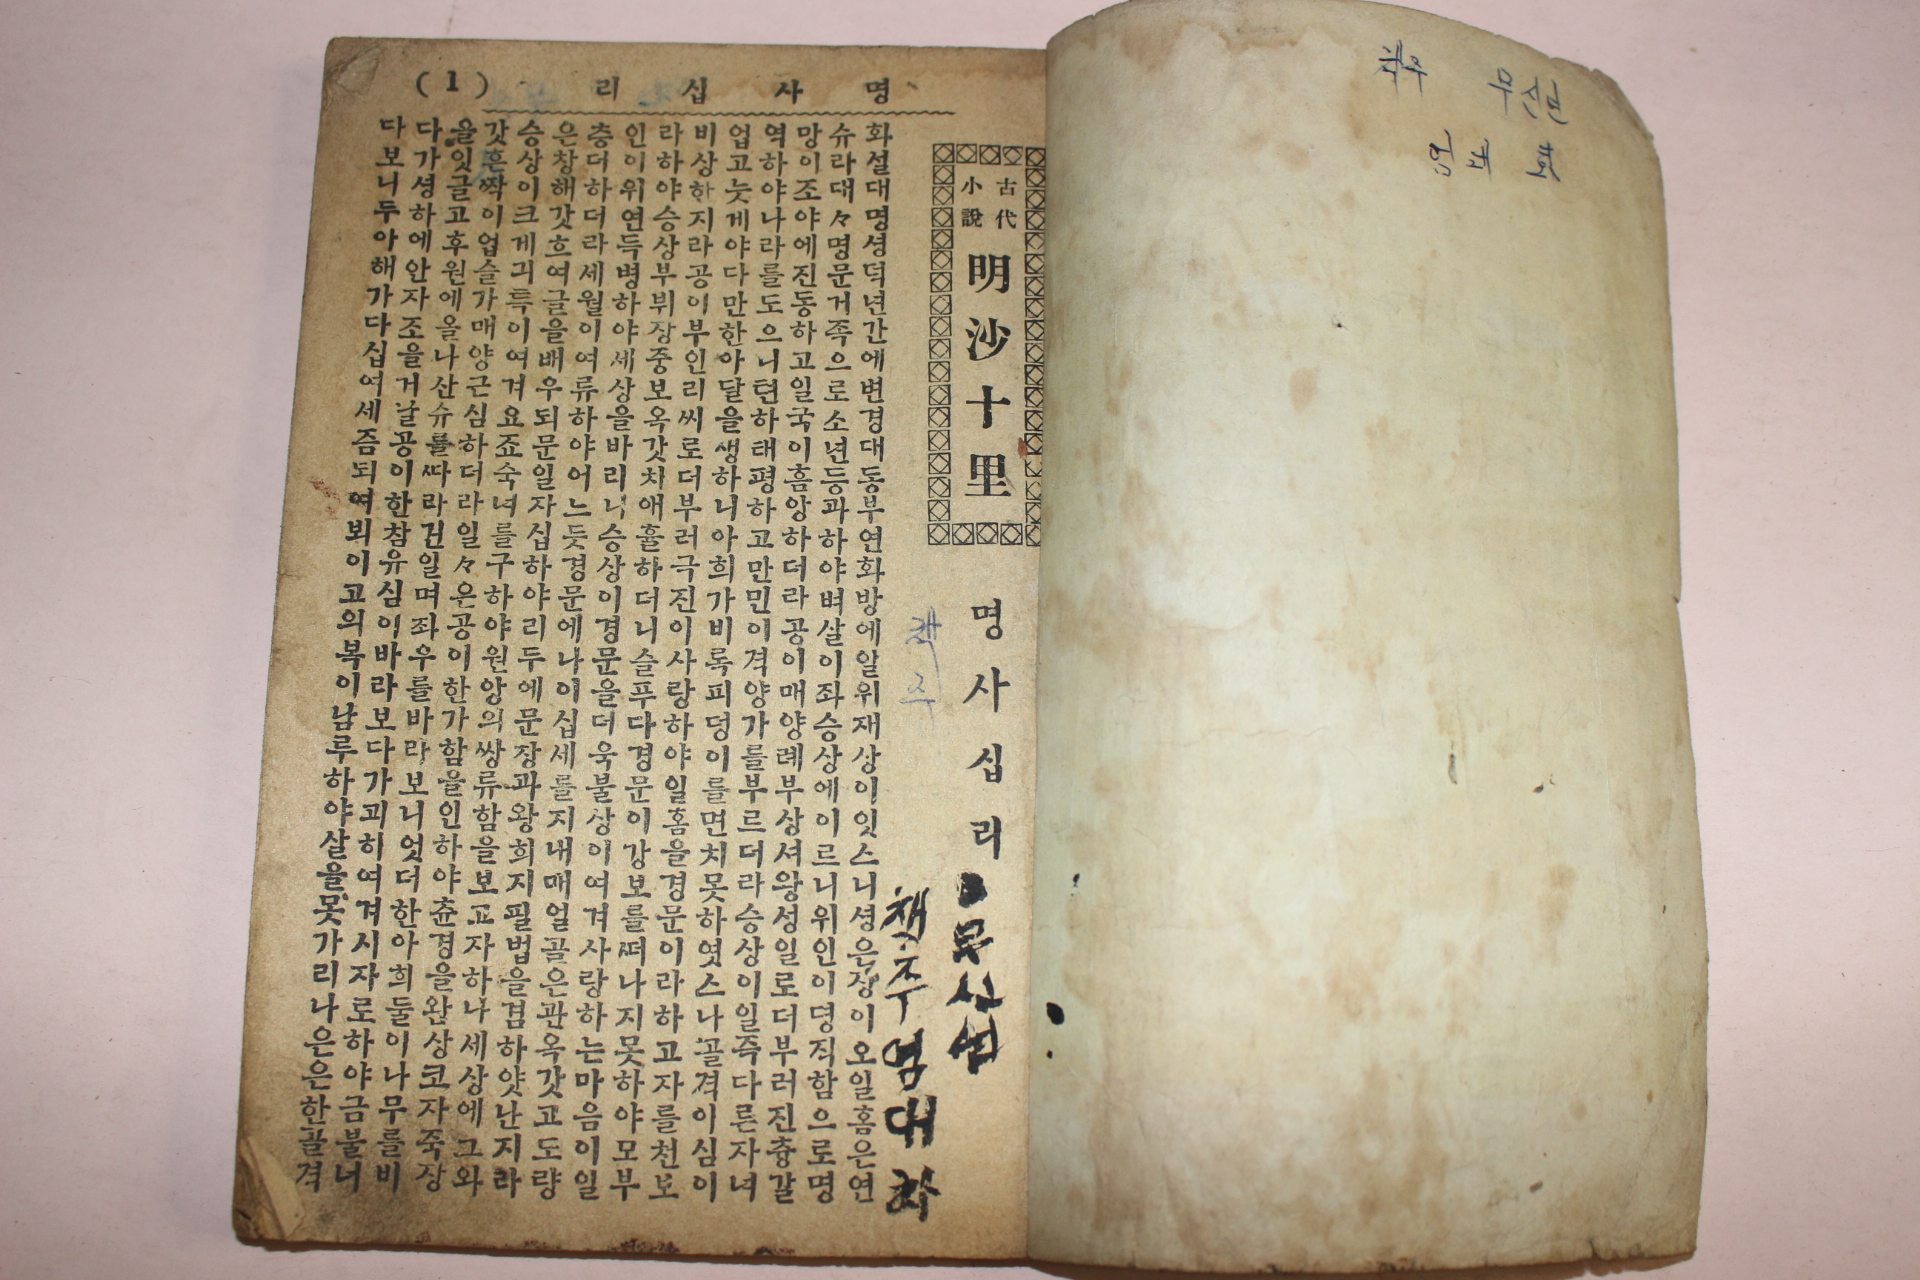 명사십리 (1)
古代
小說
明沙十里
명사십리
화셜대명셩덕년간에변경대동부연화방에일위재상이잇스니셩은장이오일홈은연
슈라대々명문거족으로소년등과하야벼살이좌승상에이르니위인이명직함으로명
망이조야에진동하고일국이흠앙하더라공이매양례부상셔왕셩일로더부러진츙갈
력하야나라를도으니텬하태평하고만민이격양가를부르더라승상이일즉다른자녀
업고늣게야다만한아달을생하니아희가비록피덩이를면치못하엿스나골격이심이
비상한지라공이부인리씨로더부러극진이사랑하야일홈을경문이라하고자를천보
라하야승상부뷔장중보옥갓치애휼하더니슬푸다경문이강보를떠나지못하야모부
인이위연득병하야세상을바리니승상이경문을더욱불상이여겨사랑하는마음이일
층더하더라세월이여류하야어느듯경문에나이십세를지내매얼골은관옥갓고도량
은창해갓흐여글을배우되문일자십하야리두에문장과왕희지필법을겸하얏난지라
승상이크게긔특이여겨요죠숙녀를구하야원앙의쌍류함을보고자하나세상에그와
갓흔짝이업슬가매양근심하더라일々은공이한가함을인하야츈경을완상코자죽장
을잇글고후원에올나산슈를따라건일며좌우를바라보니엇더한아희둘이나무를비
다가셩하에안자조을거날공이한참유심이바라보다가괴히여겨시자로하야금불너
다보니두아해가다십여세즘되여뵈이고의복이남루하야살을못가리나은은한골격
책주
책주
염대
책주